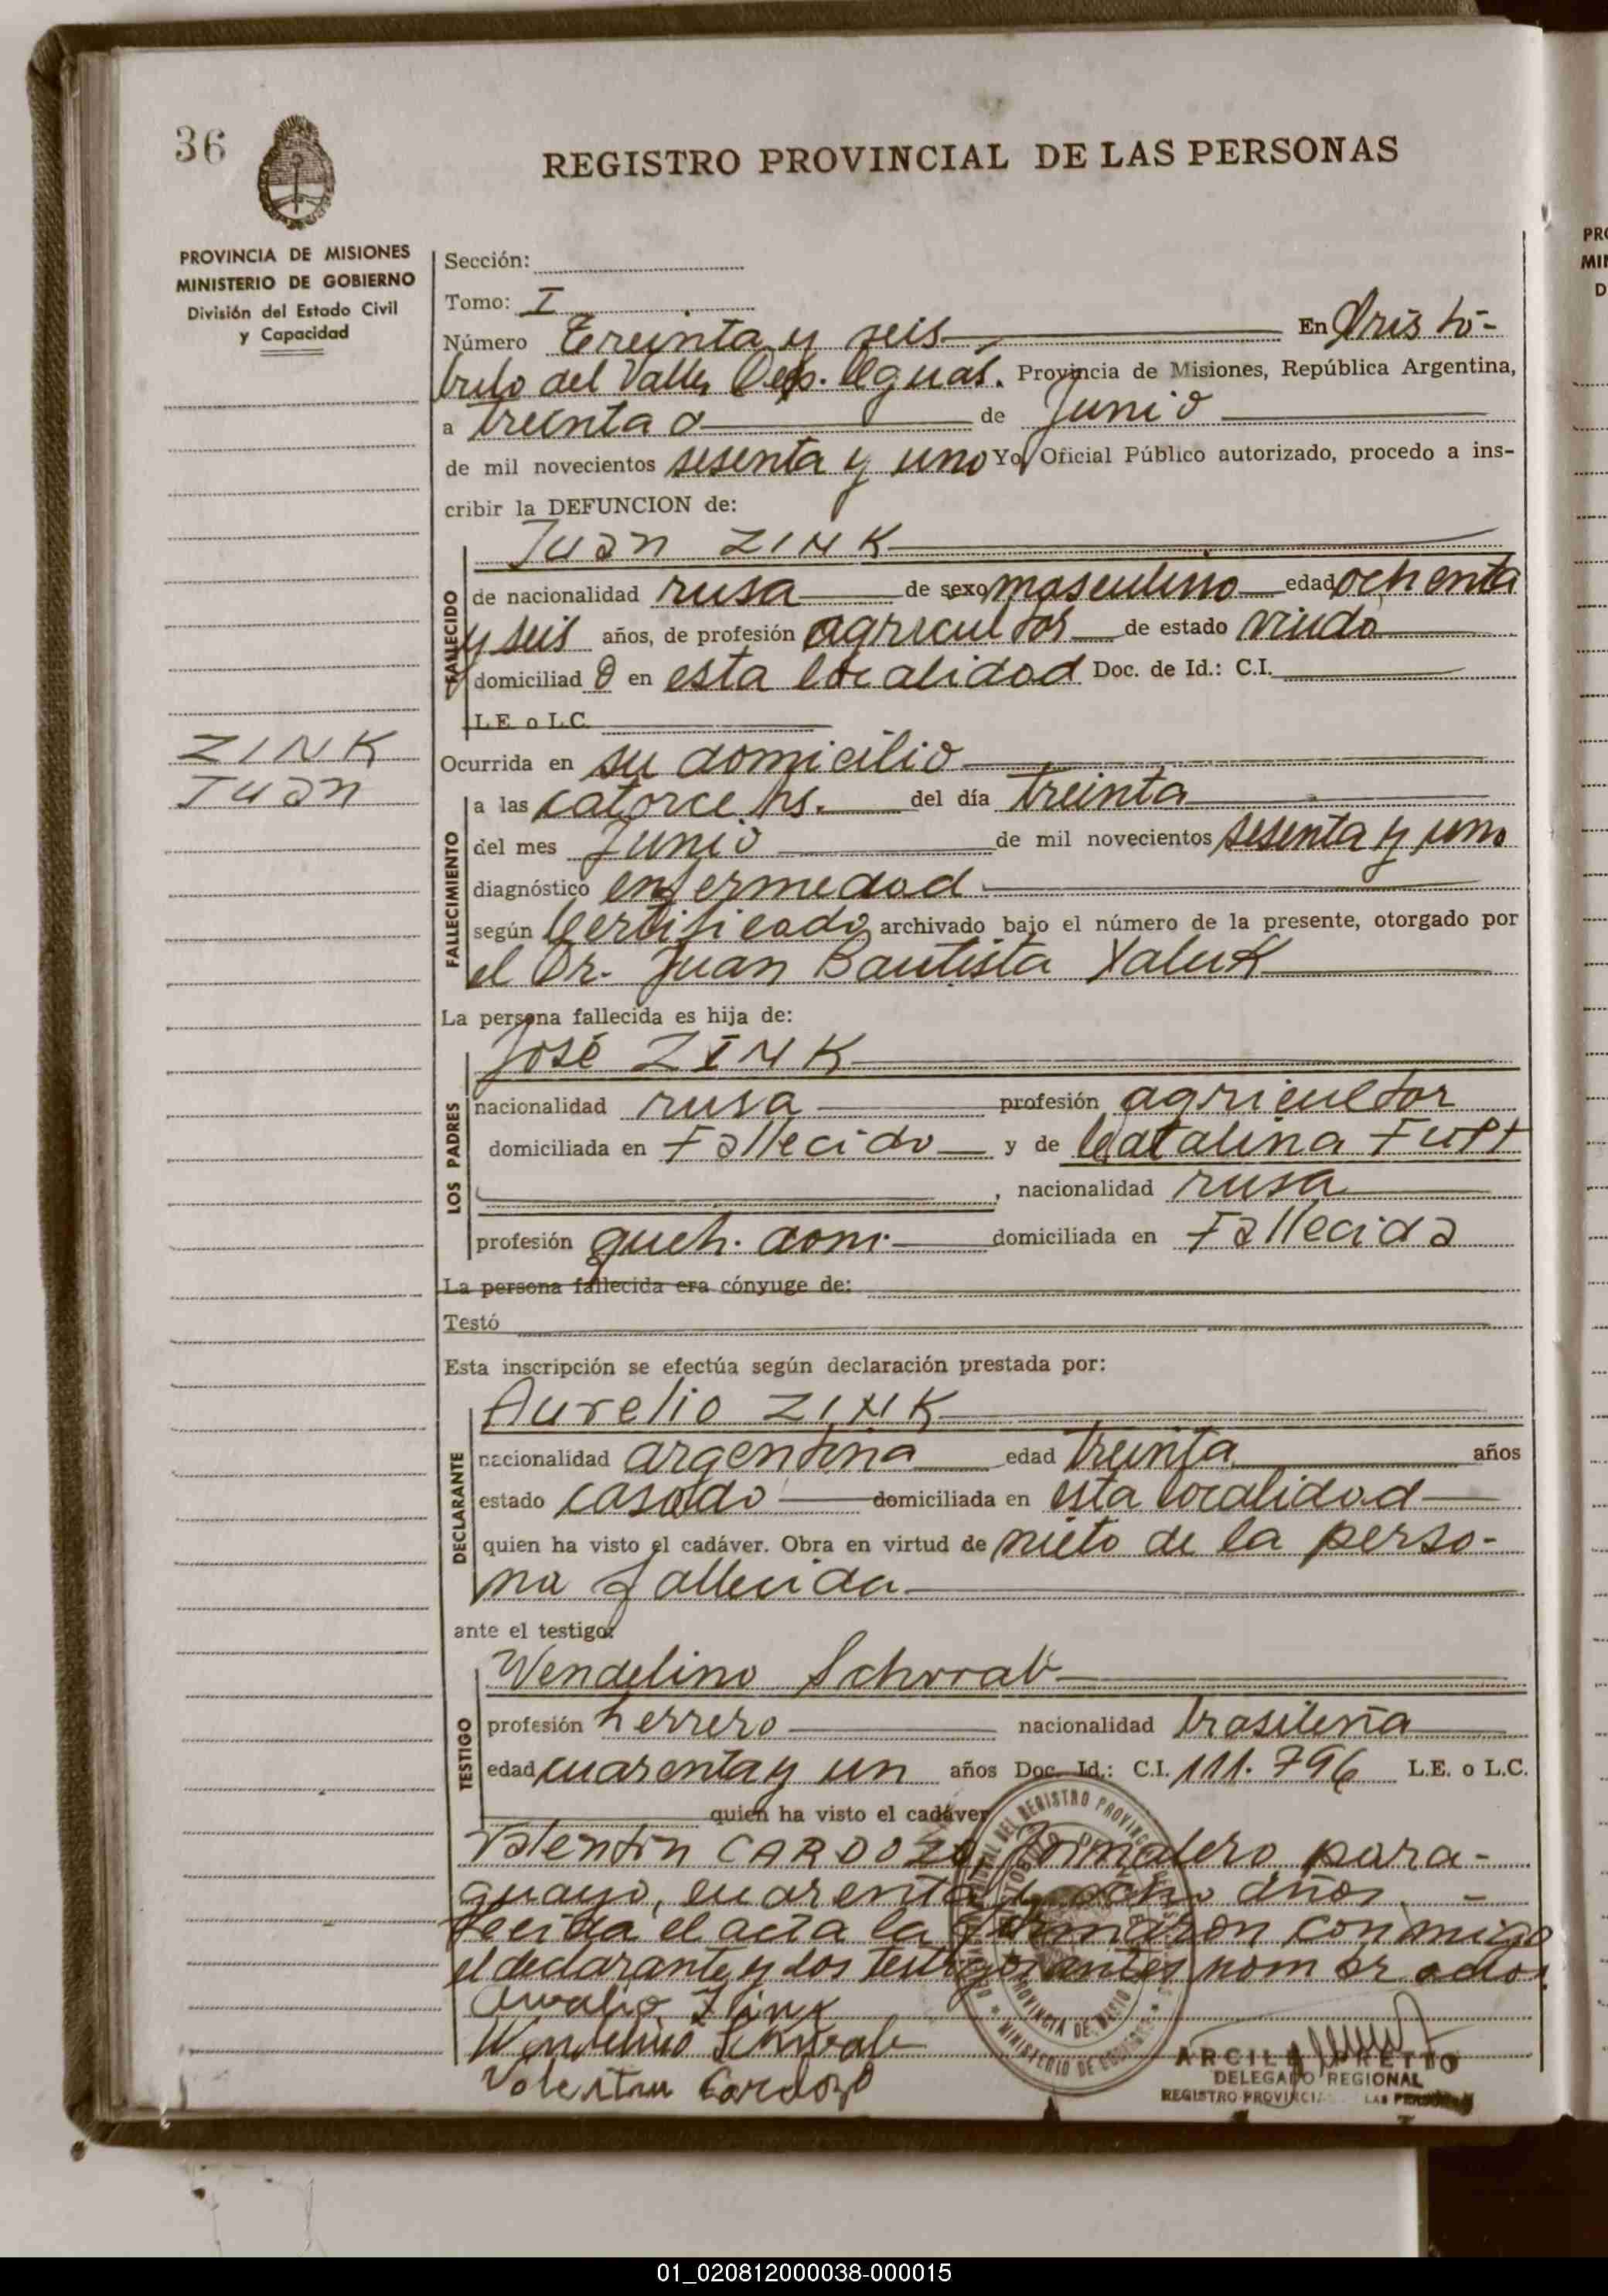 36
REGISTRO PROVINCIAL DE LAS PERSONAS
PROVINCIA DE MISIONES
MINISTERIO DE GOBIERNO
División del Estado Civil
y Capacidad
Sección:
Tomo: I
Número Treinta y seis En Cristó-
bulo del Valle, Dep. Cgnas. Provincia de Misiones, República Argentina,
a treinta de Junio
de mil novecientos sesenta y uno Yo, Oficial Público autorizado, procedo a ins-
cribir la DEFUNCION de:
Juan ZINK
FALLECIDO
de nacionalidad rusa de sexo masculino edad ochenta
y seis años, de profesión agricultor de estado viudo
domiciliad o en esta localidad Doc. de Id.: C.I.
L.E. o L.C.
ZINK
Juan
Ocurrida en su domicilio
FALLECIMIENTO
a las catorce hs. del día treinta
del mes Junio de mil novecientos sesenta y uno
diagnóstico enfermedad
según Certificado archivado bajo el número de la presente, otorgado por
el Dr. Juan Bautista Yaluk
La persona fallecida es hija de:
José ZINK
LOS PADRES
nacionalidad rusa profesión agricultor
domiciliada en Fallecido y de Catalina
, nacionalidad rusa
profesión queh. dom. domiciliada en Fallecida
La persona fallecida era cónyuge de:
Testó
Esta inscripción se efectúa según declaración prestada por:
Aurelio ZINK
DECLARANTE
nacionalidad argentina edad treinta años
estado casado domiciliada en esta localidad
quien ha visto el cadáver. Obra en virtud de nieto de la perso-
na fallecida
ante el testigo:
Wendelino Schwab
TESTIGO
profesión herrero nacionalidad brasileña
edad cuarenta y un años Doc. Id.: C.I. 111.796 L.E. o L.C.
quien ha visto el cadáver
Valentin CARDOZO, Jornalero, para-
guayo, cuarenta y ocho años. -
Leida el acta la firmaron conmigo
el declarante y los testigos antes nombrados
Aurelio Zink
Wendelino Schwab
Valentin Cardozo
REGISTRO PROVINCIAL
PROVINCIA DE MISIONES
MINISTERIO DE GOBIERNO
ARCILA PRETTO
DELEGADO REGIONAL
REGISTRO PROVINCIAL LAS PERSONAS
PR
MI
D
01_020812000038-000015